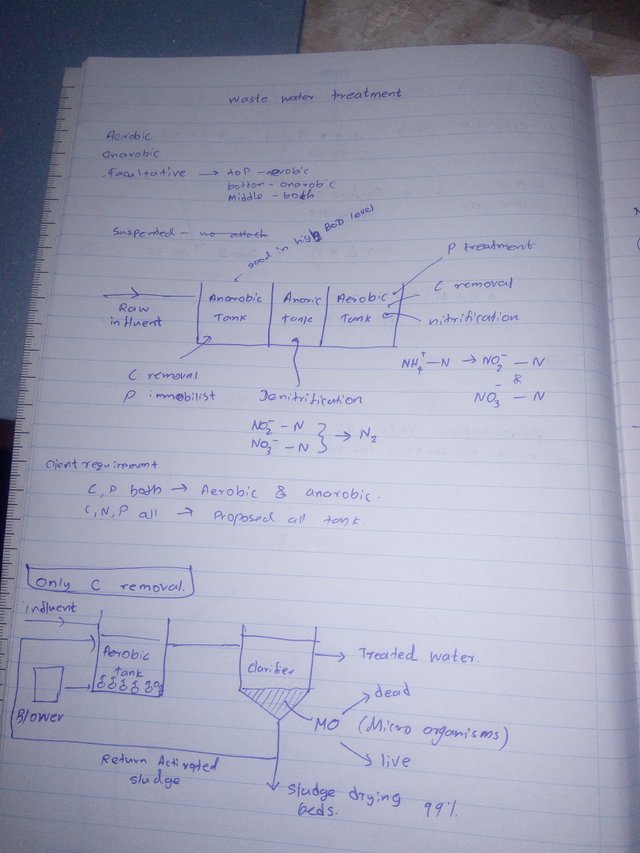 Waste water treatment
Aerobic
anarobic
facultative → top - aerobic
bottom - anarobic
Middle - both
Suspended - no attach
good in high BOD level
P treatment
C removal
nitrification
Raw
influent
Anarobic
Tank
Anoxic
tank
Aerobic
Tank
NH₄⁺-N → NO₂⁻ - N
&
NO₃⁻ - N
C removal
P immobilist
Denitrification
NO₂⁻ - N
NO₃⁻ - N } → N₂
Client requirement
C, P both → Aerobic & anarobic.
C, N, P all → Proposed all tank.
Only C removal.
Influent
Aerobic
tank
Blower
clarifier
→ Treated water.
dead
MO (Micro organisms)
live
Return Activated
sludge
sludge drying
beds. 99%.